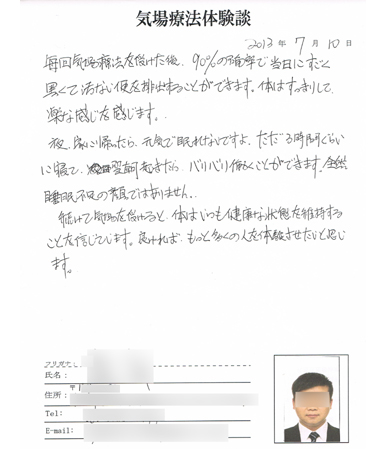 気場療法体験談
2013年7月10日
毎回気場療法を受けた後、90%の確率で当日にすごく
黒くて汚ない便を排出することができます。体はすっきりして、
楽な感じを感じます。
夜、家に帰ったら、元気で眠れないですよ、ただ3時間くらい
に寝て、翌朝起きたら、バリバリ働くことができます。全然
睡眠不足の顔ではありません。
続けて気場を受けると、体はいつも健康な状態を維持する
ことを信じています。良ければ、もっと多くの人を体験させたいと思い
ます。
フリガナ:
氏名:
〒
住所:
Tel:
E-mail: